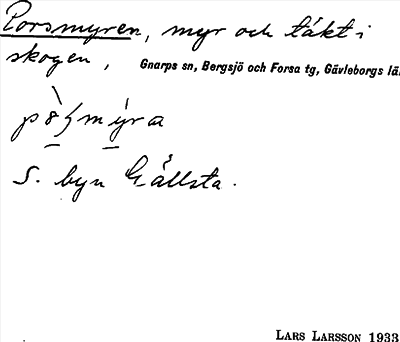 Porsmyren, myr och täkt i
skogen, Gnarps sn, Bergsjö och Forsa tg, Gävleborgs lä
S. byn Gällsta.
LARS LARSSON 1933